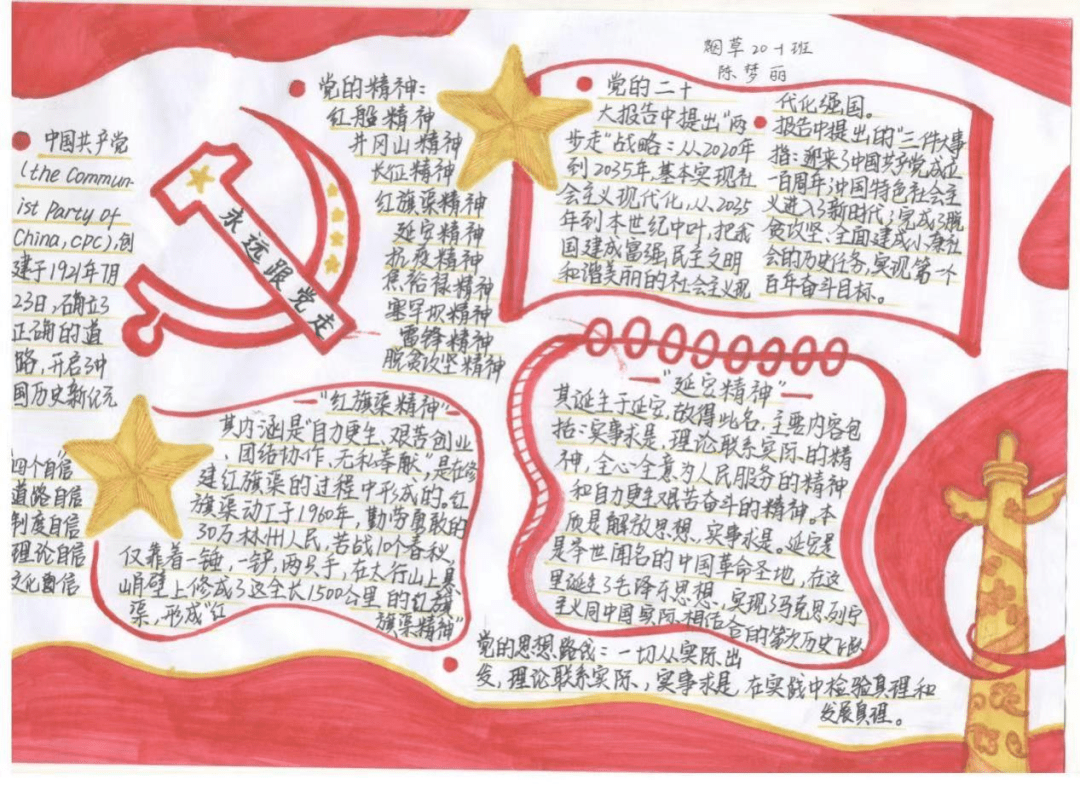 烟草20-1班
陈梦丽
中国共产党
(the Commun-
ist Party of
China, CPC),创
建于1921年7月
23日,确立了
正确的道
路,开启了中
国历史新纪元
永远跟党走
党的精神:
红船精神
井冈山精神
长征精神
红旗渠精神
延安精神
抗疫精神
焦裕禄精神
塞罕坝精神
雷锋精神
脱贫攻坚精神
党的二十
大报告中提出"两
步走"战略:从2020年
到2035年,基本实现社
会主义现代化,从2035
年到本世纪中叶,把我
国建成富强民主文明
和谐美丽的社会主义现
代化强国。
报告中提出的"三件大事
指:迎来了中国共产党成立
一百周年;中国特色社会主
义进入了新时代;完成了脱
贫攻坚、全面建成小康社
会的历史任务,实现第一个
百年奋斗目标。
四个自信
道路自信
制度自信
理论自信
文化自信
"红旗渠精神"
其内涵是"自力更生、艰苦创业
、团结协作、无私奉献",是在修
建红旗渠的过程中形成的。红
旗渠动工于1960年,勤劳勇敢的
30万林州人民,苦战10个春秋,
仅靠着一锤,一铲,两只手,在太行山上悬
崖壁上修成了这全长1500公里的红旗
渠,形成"红
旗渠精神"
"延安精神"
其诞生于延安,故得此名,主要内容包
括:实事求是、理论联系实际的精
神,全心全意为人民服务的精神
和自力更生艰苦奋斗的精神。本
质是解放思想、实事求是。延安是
是举世闻名的中国革命圣地,在这
里诞生了毛泽东思想、实现了马克思列宁
主义同中国实际相结合的第次历史飞跃
党的思想路线:一切从实际出
发,理论联系实际,实事求是,在实战中检验真理和
发展真理。